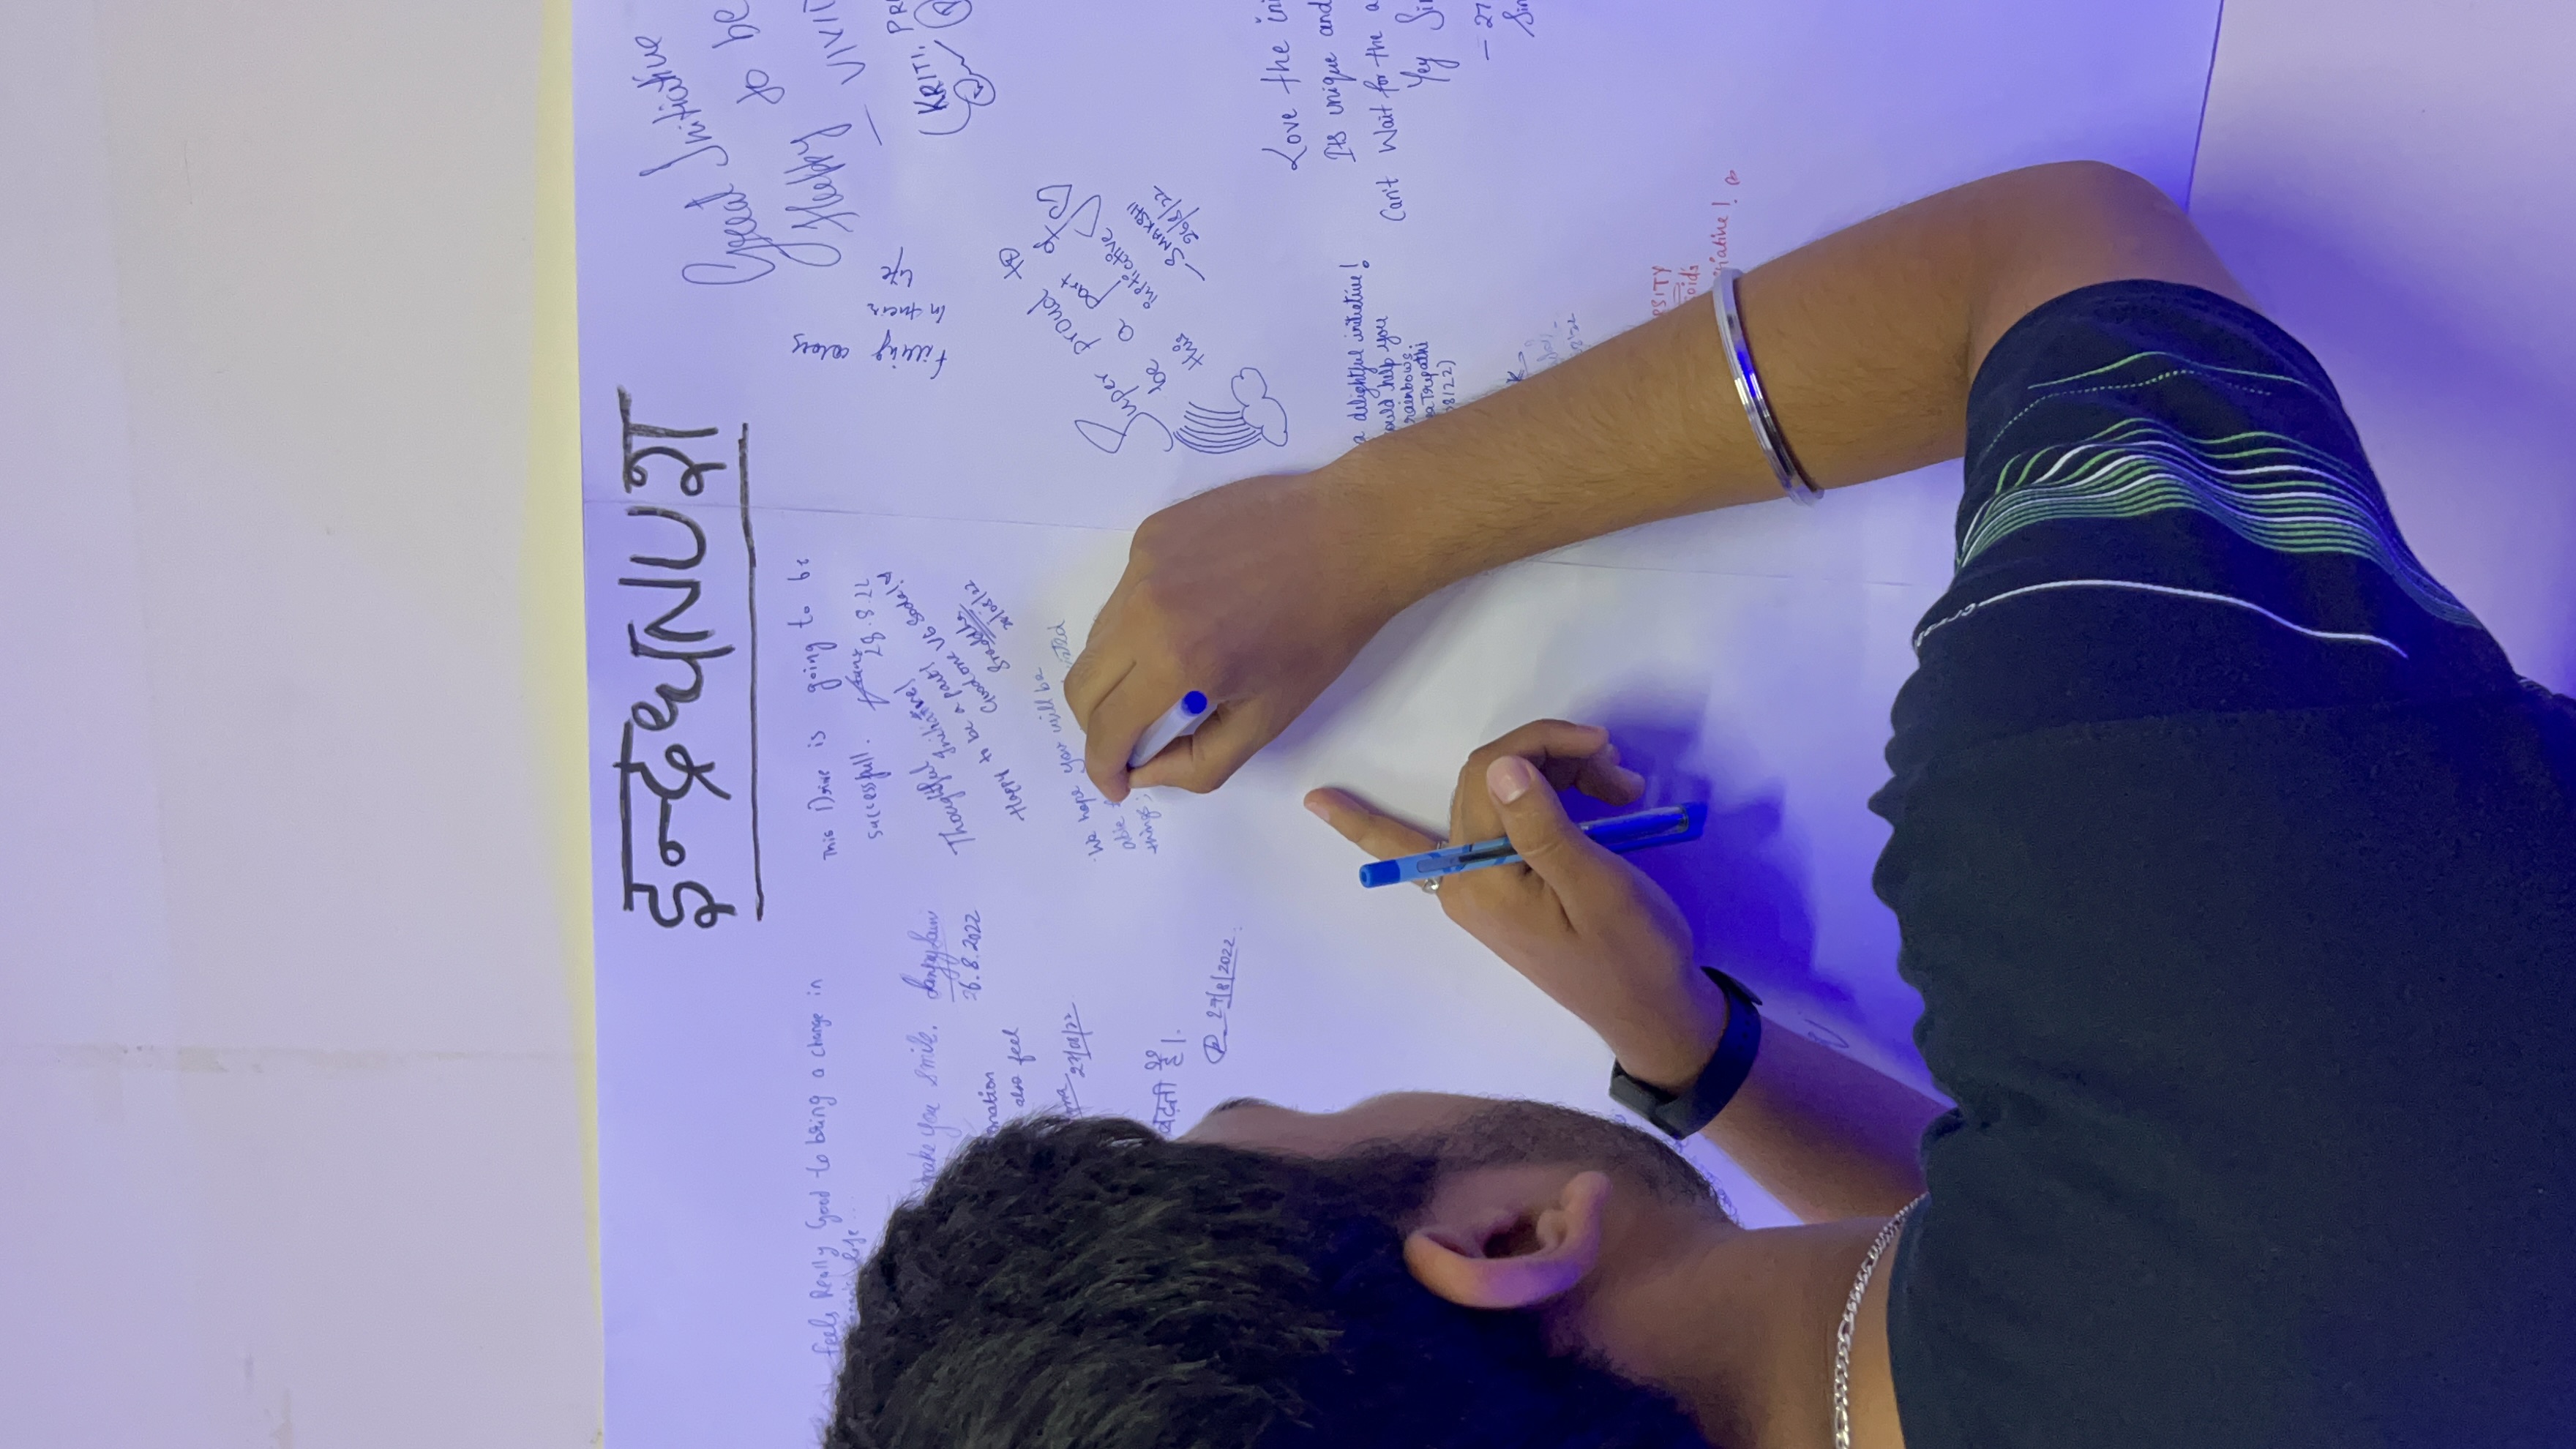 इन्द्रधNUश
feels Really Good to bring a change in
life...
make you smile. Sanjay Saini
26.8.2022
onation
also feel
27/08/22
बढ़ती है।
27/8/2022.
This Drive is going to be
successfull.
28.8.22
Thoughtful
Initiative!
Happy to be a part!
Good one VB Sodel!
Sraddha
We hope you will be
able
things;
filling colors
in their
life
Great Initiative
Happy to be
— VIVI
(KRITI, PR
Super proud to
be a part of
this initiative
— SMAKSHI
26/8/22
a delightful initiative!
ould help you
rainbows.
a Tripathi
08/22)
Love the ini
Its unique and
Can't Wait for the a
Yey Sir
— 27
Sin
RSITY
oids
itiative!